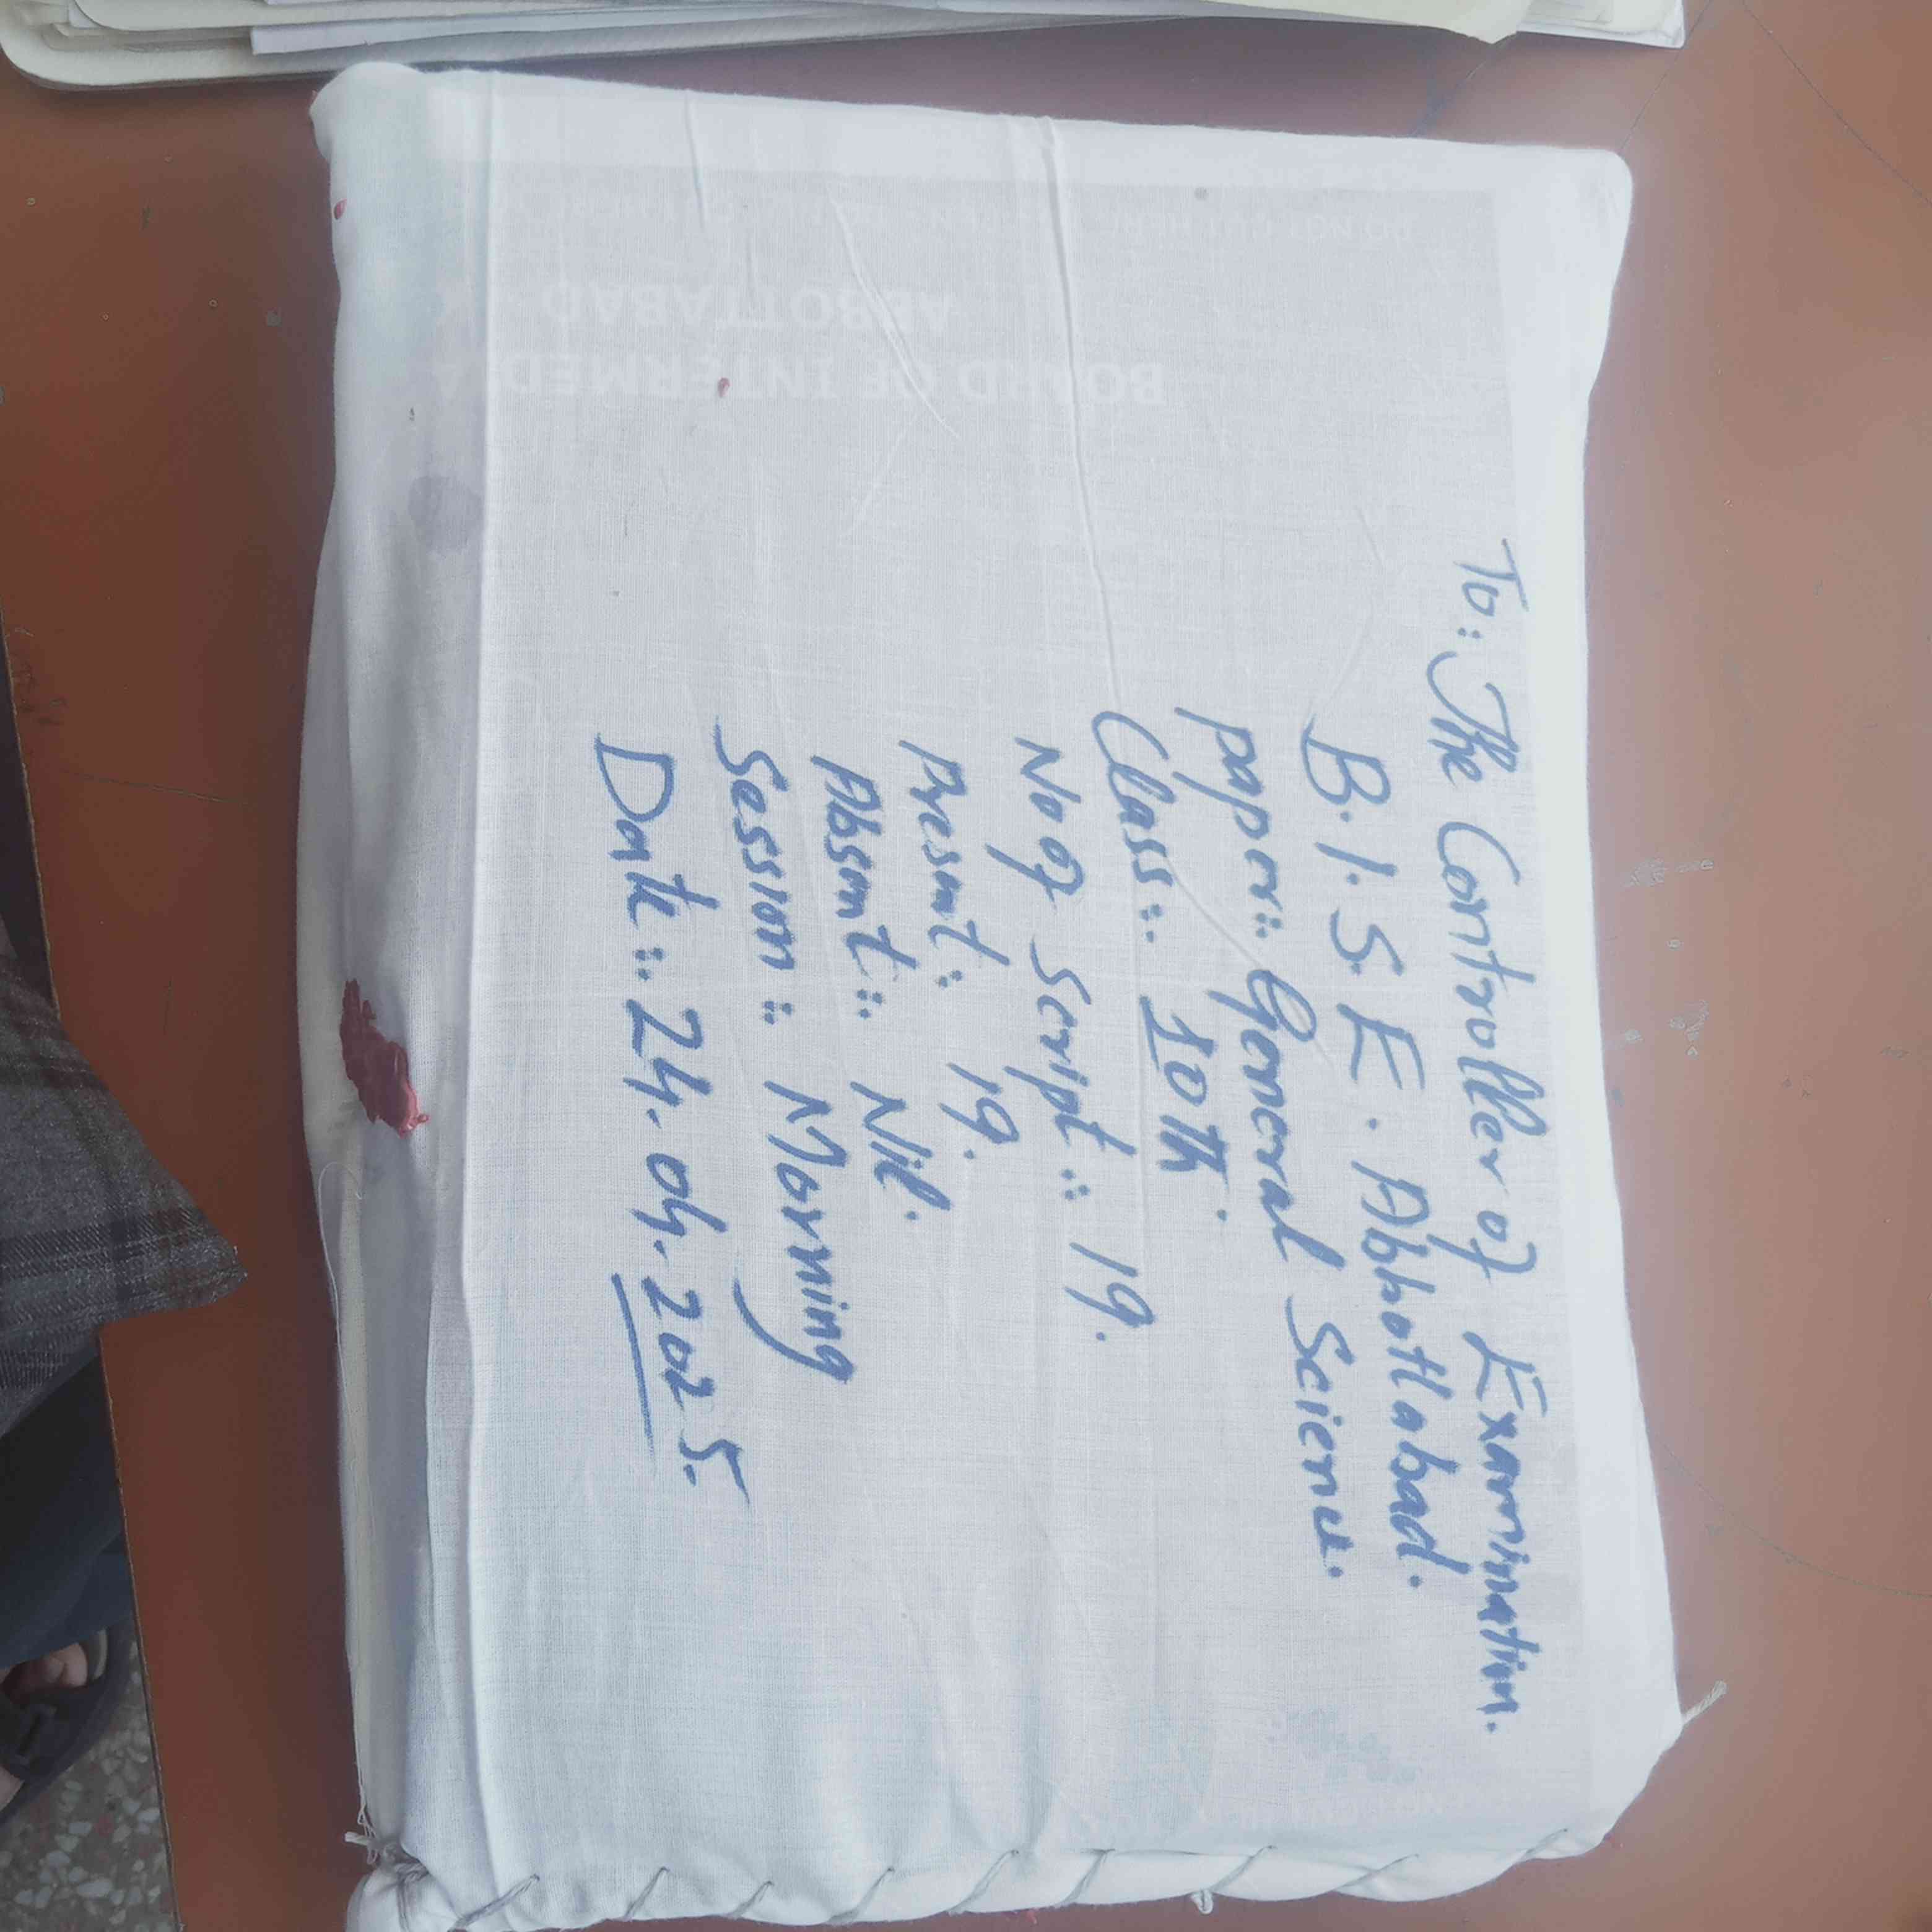 To: The Controller of Examination.
B.I.S.E. Abbottabad.
paper: General Science.
Class: 10th.
No of Script: 19.
Present: 19.
Absent: Nil.
Session: Morning
Date: 24.04.2025.
BOARD OF INTERMED
ABBOTTABAD